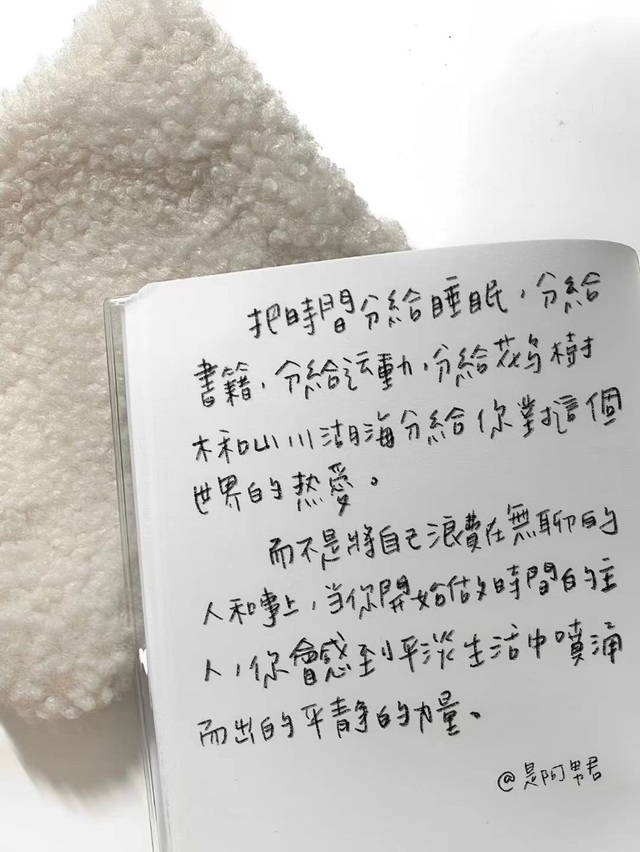 把時間分給睡眠，分給
書籍，分給运動，分給花鸟樹
木和山川湖海分給你對這個
世界的热愛。
而不是將自己浪費在無聊的
人和事上，当你開始做時間的主
人，你會感到平淡生活中噴涌
而出的平静的力量。
@是阿男君